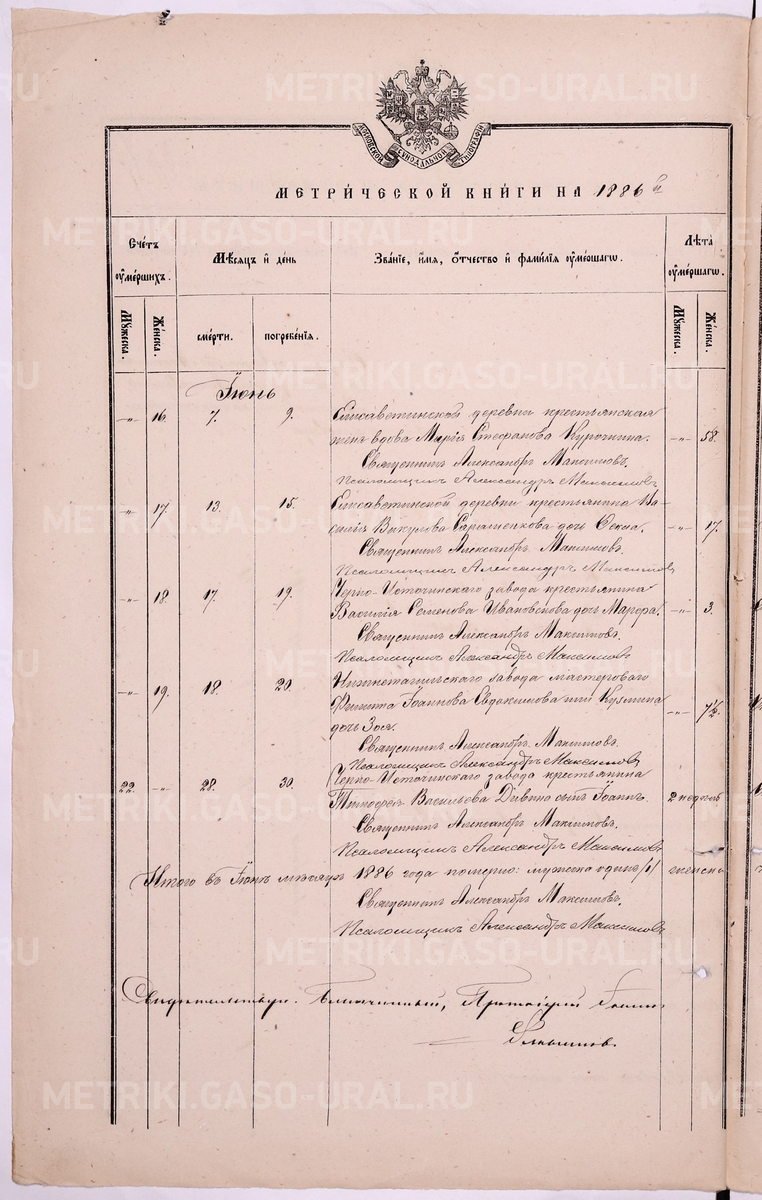 METRIKI.GASO-URAL.RU
МОСКОВСКОЙ СѴНОДАЛЬНОЙ ТИПОГРАФІИ
МЕТРИ́ЧЕСКОЙ КНИ́ГИ НА 1886 й
Сче́тъ ᲂу҆ме́ршихъ.
Мѣ́сяцъ и҆ де́нь
Зва́нїе, и҆́мѧ, ѻ҆́тчество и҆ фами́лїѧ ᲂу҆ме́ршагѡ.
Лѣ́та ᲂу҆ме́ршагѡ.
Мꙋ́жеска.
Же́нска.
сме́рти.
погребе́нїѧ.
Мꙋ́жеска.
Же́нска.
Іюнь
-"- 16. 7. 9. Елисаветинской деревни крестьянская
жен вдова Марія Стефанова Курочкина. -"- 58.
Священникъ Александръ Максимовъ.
Псаломщикъ Александръ Максимовъ
-"- 17. 13. 15. Елисаветинской деревни крестьянина Ва-
силія Викулова дочь -"- 17.
Священникъ Александръ Максимовъ.
Псаломщикъ Александръ Максимовъ
-"- 18. 17. 19. Черно-Источинскаго завода крестьянина
Василія Семенова дочь Марѳа. -"- 3.
Священникъ Александръ Максимовъ.
Псаломщикъ Александръ Максимовъ
-"- 19. 18. 20. Нижнетагильскаго завода мастероваго
Филиппа Іоаннова Евдокимова или Кузмина -"- 7½
дочь Зоя.
Священникъ Александръ Максимовъ.
Псаломщикъ Александръ Максимовъ
Черно-Источинскаго завода крестьянина
22. -"- 28. 30. Тимоѳея Васильева сынъ Іоаннъ. 2 недѣль
Священникъ Александръ Максимовъ.
Псаломщикъ Александръ Максимовъ
Итого въ Іюнѣ мѣсяцѣ 1886 года померло: мужска одинъ /1/ женска
Священникъ Александръ Максимовъ.
Псаломщикъ Александръ Максимовъ
Свидѣтельствую. Благочинный, Протоіерей